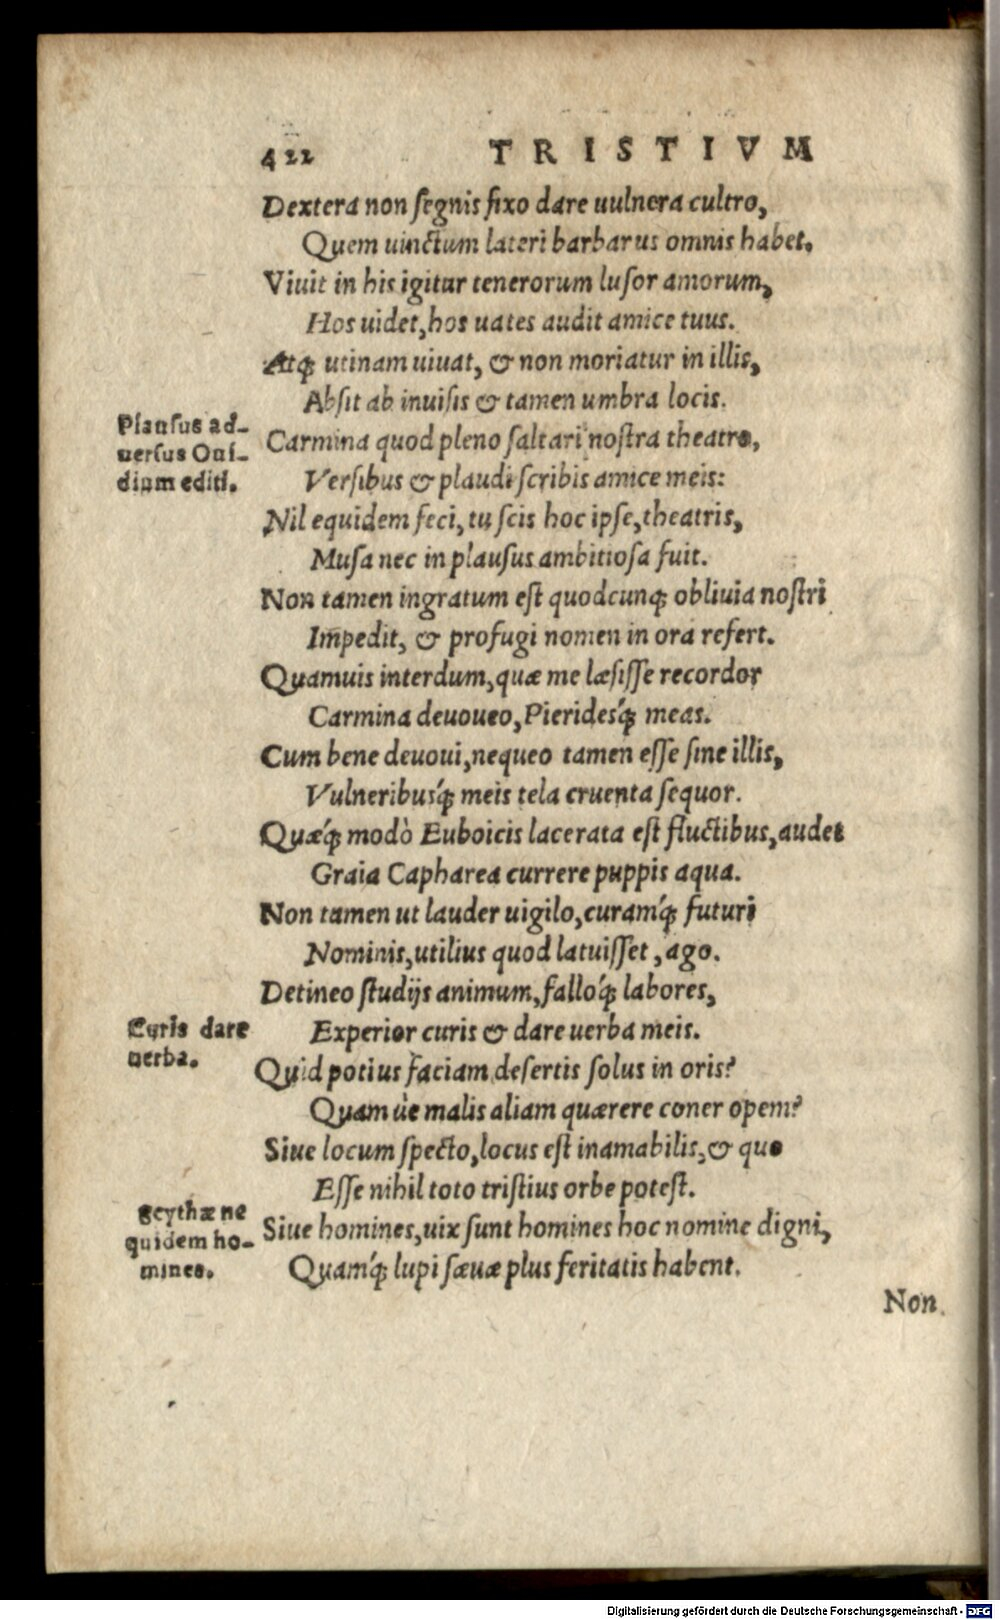 422 TRISTIVM
Dextera non segnis fixo dare uulnera cultro,
Quem uinctum lateri barbarus omnis habet.
Viuit in his igitur tenerorum lusor amorum,
Hos uidet, hos uates audit amice tuus.
Atq; utinam uiuat, & non moriatur in illis,
Absit ab inuisis & tamen umbra locis.
Plausus ad-
uersus Oui-
dium editi.
Carmina quod pleno saltari nostra theatro,
Versibus & plaudi scribis amice meis:
Nil equidem feci, tu scis hoc ipse, theatris,
Musa nec in plausus ambitiosa fuit.
Non tamen ingratum est quodcunq; obliuia nostri
Impedit, & profugi nomen in ora refert.
Quamuis interdum, quæ me læsisse recordor
Carmina deuoueo, Pieridesq́; meas.
Cum bene deuoui, nequeo tamen esse sine illis,
Vulneribusq́; meis tela cruenta sequor.
Quæq́; modò Euboicis lacerata est fluctibus, audet
Graia Capharea currere puppis aqua.
Non tamen ut lauder uigilo, curamq́; futuri
Nominis, utilius quod latuisset, ago.
Detineo studijs animum, falloq́; labores,
Curis dare
uerba.
Experior curis & dare uerba meis.
Quid potius faciam desertis solus in oris?
Quam ùe malis aliam quærere coner opem?
Siue locum specto, locus est inamabilis, & quo
Esse nihil toto tristius orbe potest.
Scythæ ne
quidem ho-
mines.
Siue homines, uix sunt homines hoc nomine digni,
Quamq́; lupi sæuæ plus feritatis habent.
Non
Digitalisierung gefördert durch die Deutsche Forschungsgemeinschaft - DFG